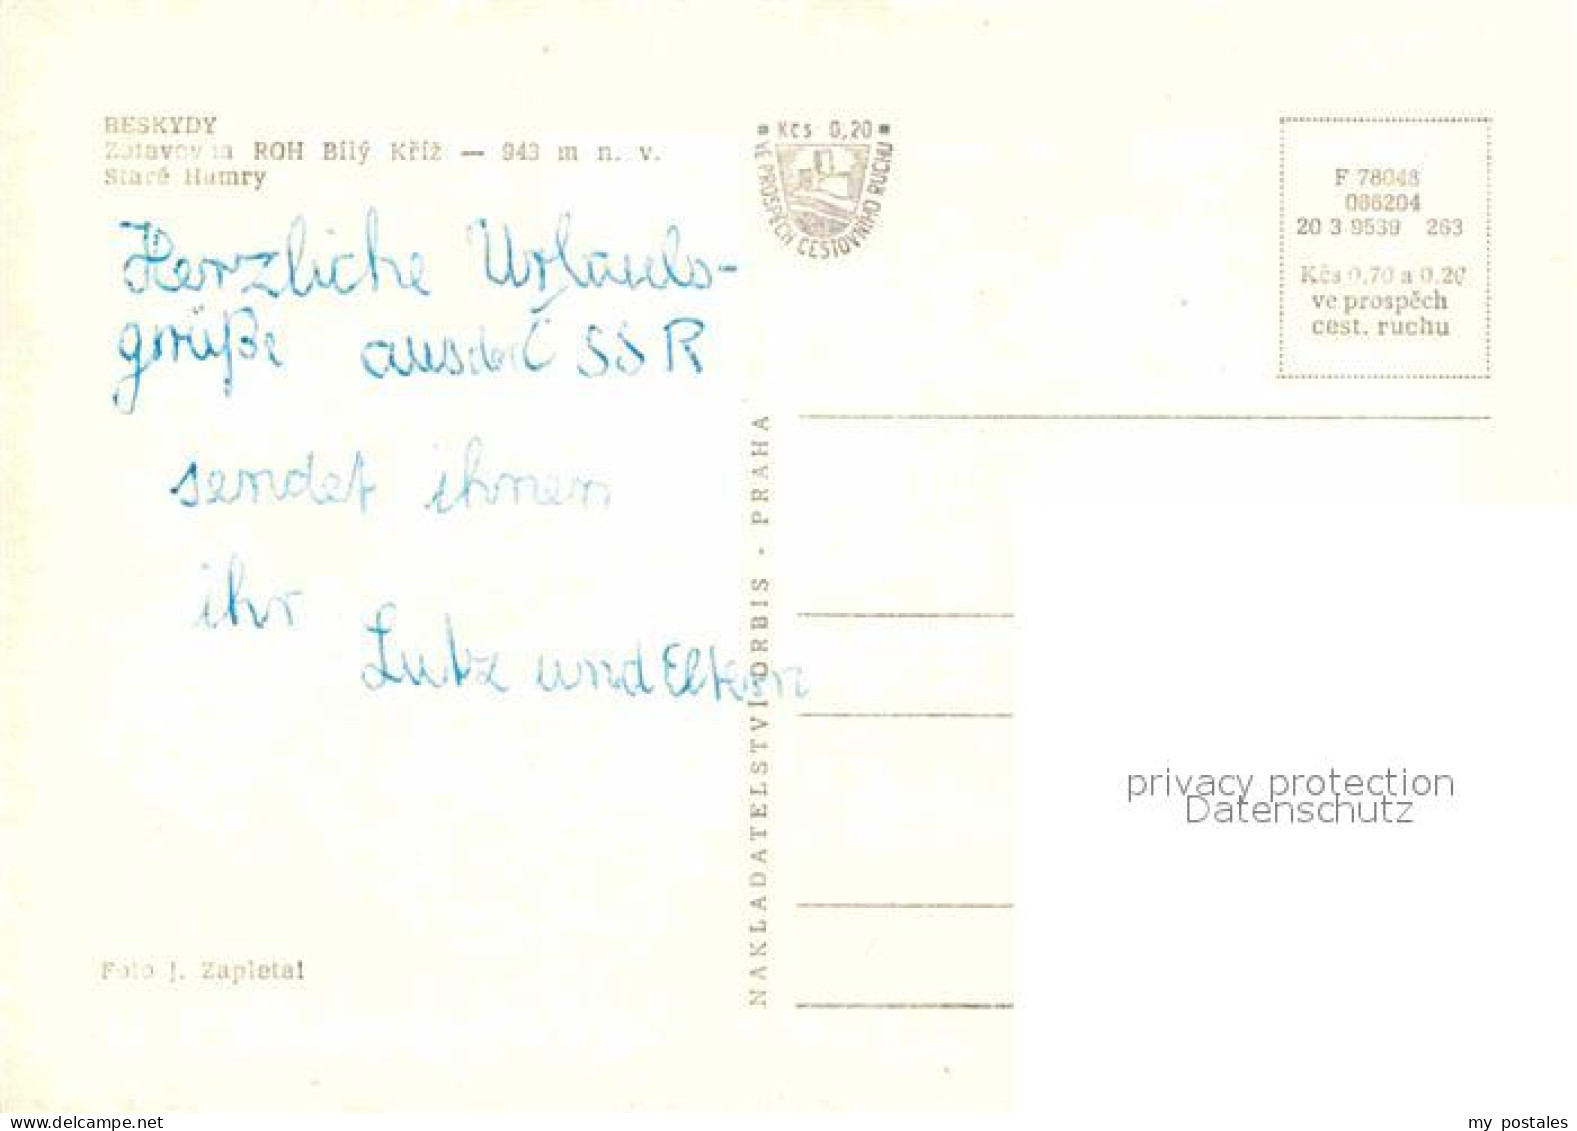 BESKYDY
Zotavovna ROH Bílý Kříž — 943 m n. v.
Staré Hamry
Herzliche Urlaubs-
grüße aus der ČSSR
sendet ihnen
ihr
Lutz und Eltern
Foto J. Zapletal
NAKLADATELSTVÍ ORBIS · PRAHA
Kčs 0,20
VE PROSPĚCH CESTOVNÍHO RUCHU
F 78048
086204
20 3 9539 263
Kčs 0,70 a 0.20
ve prospěch
cest. ruchu
privacy protection
Datenschutz
my postales